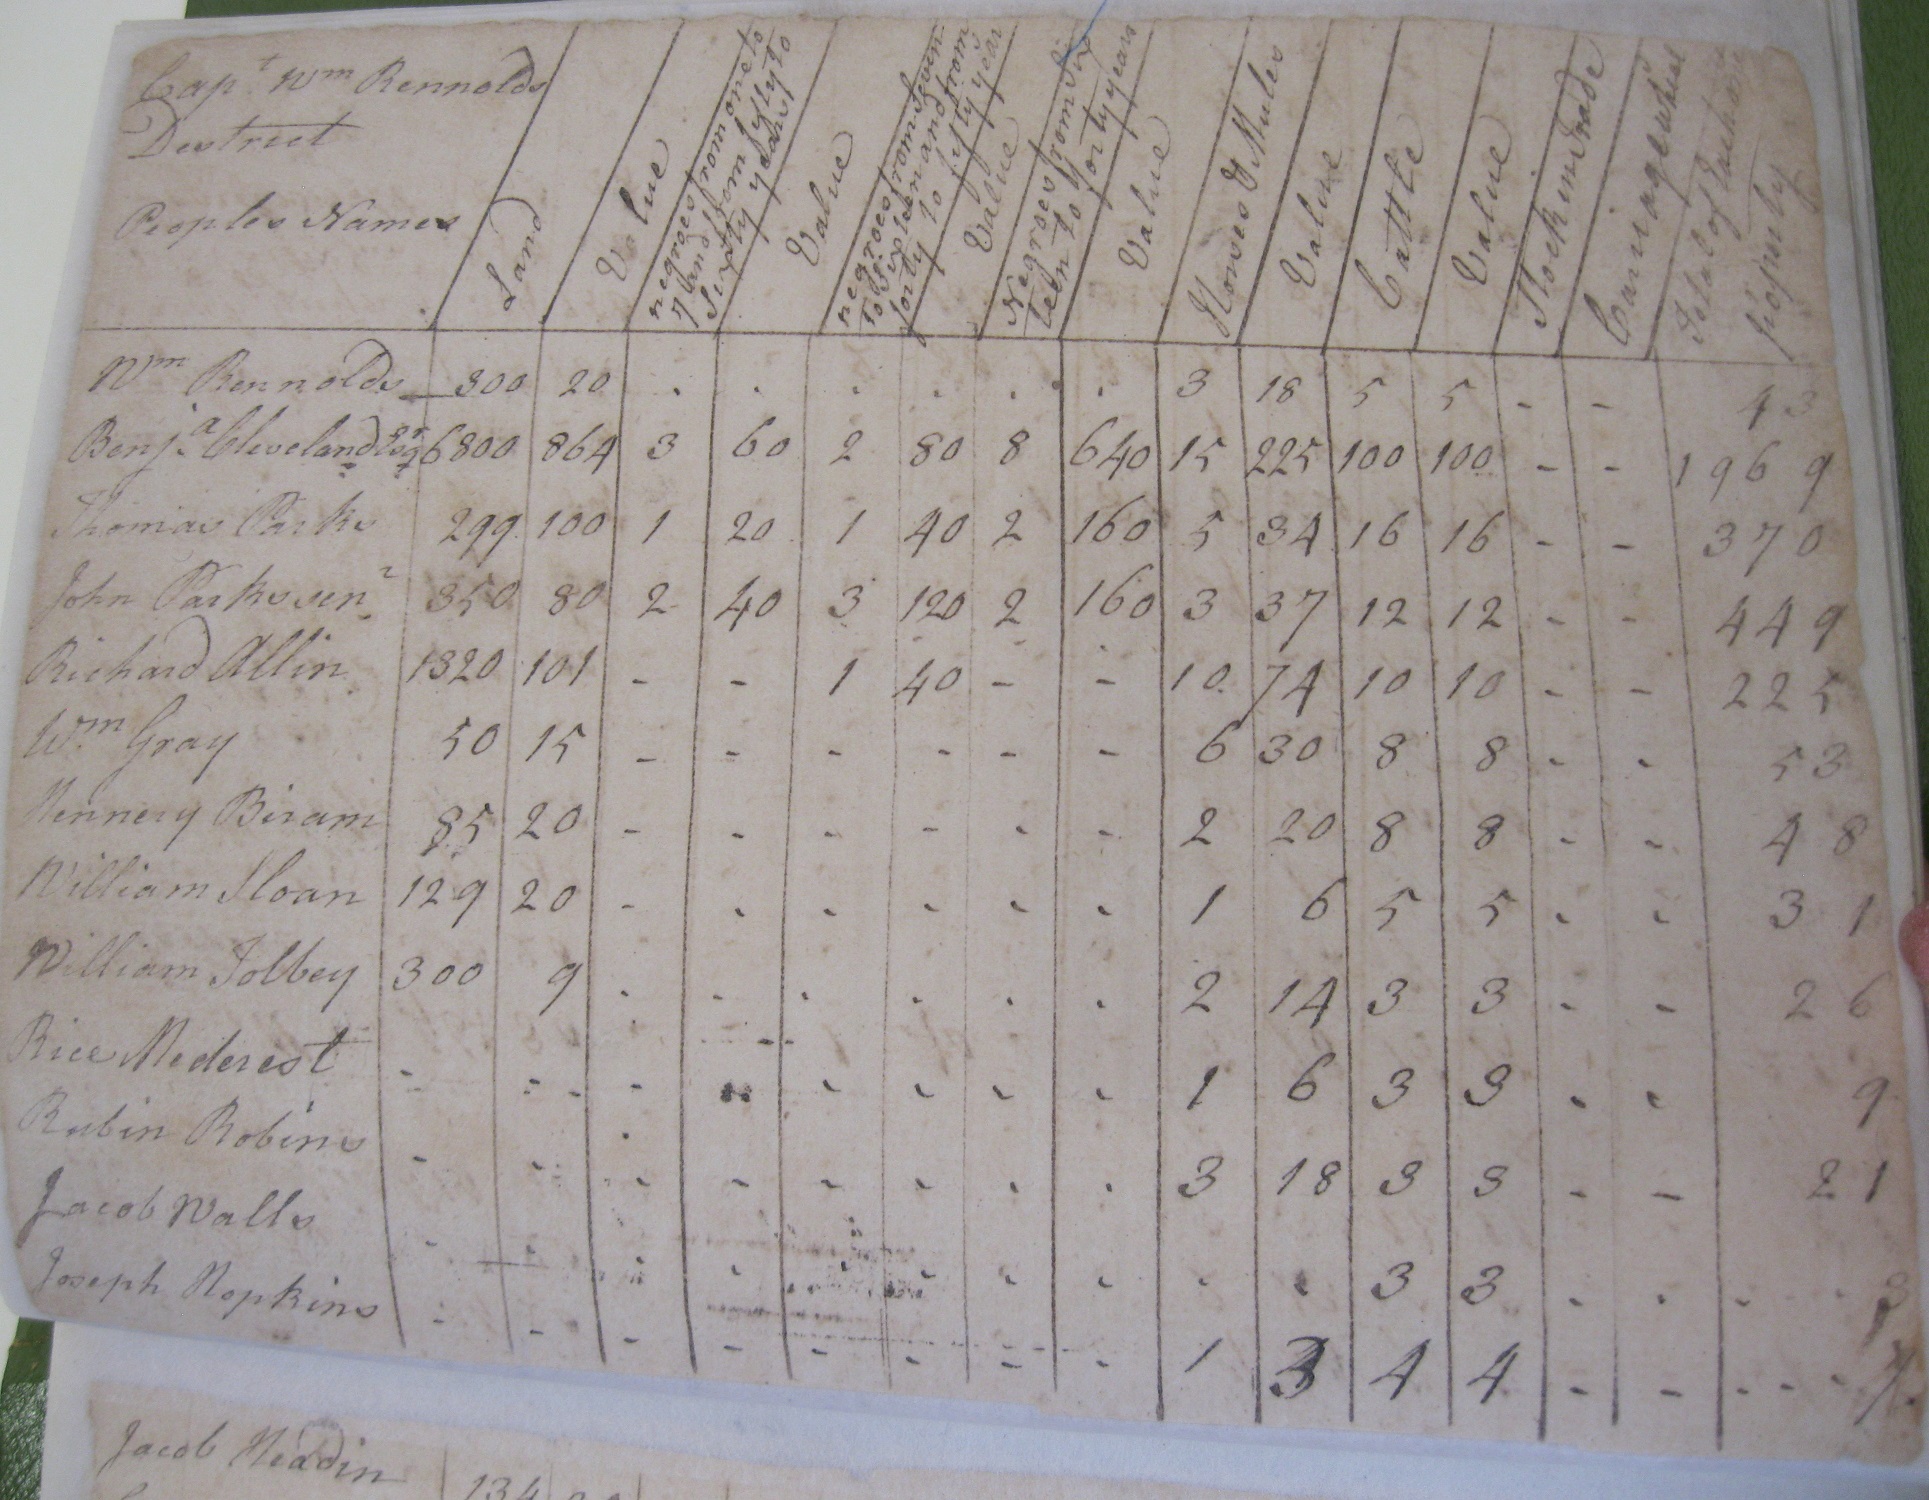 Capt Wm Rennolds
Destrict
Peoples Names
Land
Value
negroes from one to
7 and from fifty to
Sixty years
Value
negroes from Seven
to Sixteen and from
forty to fifty year
Value
Negroes from Six
teen to forty years
Value
Horses & Mules
Value
Cattle
Value
Stock in Trade
Carriage wheel
Total of
property
Wm Rennolds 300 20 . . . . . . 3 18 5 5 - - 43
Benja Cleveland Esqr 6800 864 3 60 2 80 8 640 15 225 100 100 - - 1969
Thomas Parks 299 100 1 20 1 40 2 160 5 34 16 16 - - 370
John Parks senr 350 80 2 40 3 120 2 160 3 37 12 12 - - 449
Richard Allin 1320 101 - - 1 40 - - 10 74 10 10 - - 225
Wm Gray 50 15 - - - - - - 6 30 8 8 - - 53
Hennery Biram 85 20 - - - - - - 2 20 8 8 - - 48
William Sloan 129 20 - - - - - - 1 6 5 5 - - 31
William Tolbey 300 9 . . . . . . 2 14 3 3 - - 26
Rice Mederest - - - - - - - 1 6 3 3 - - 9
Rubin Robins - - - - - - - - 3 18 3 3 - - 21
Jacob Walls - - - - - - - - - - 3 3 - - 3
Joseph Hopkins - - - - - - - - 1 3 4 4 - - 7
Jacob Headin 134